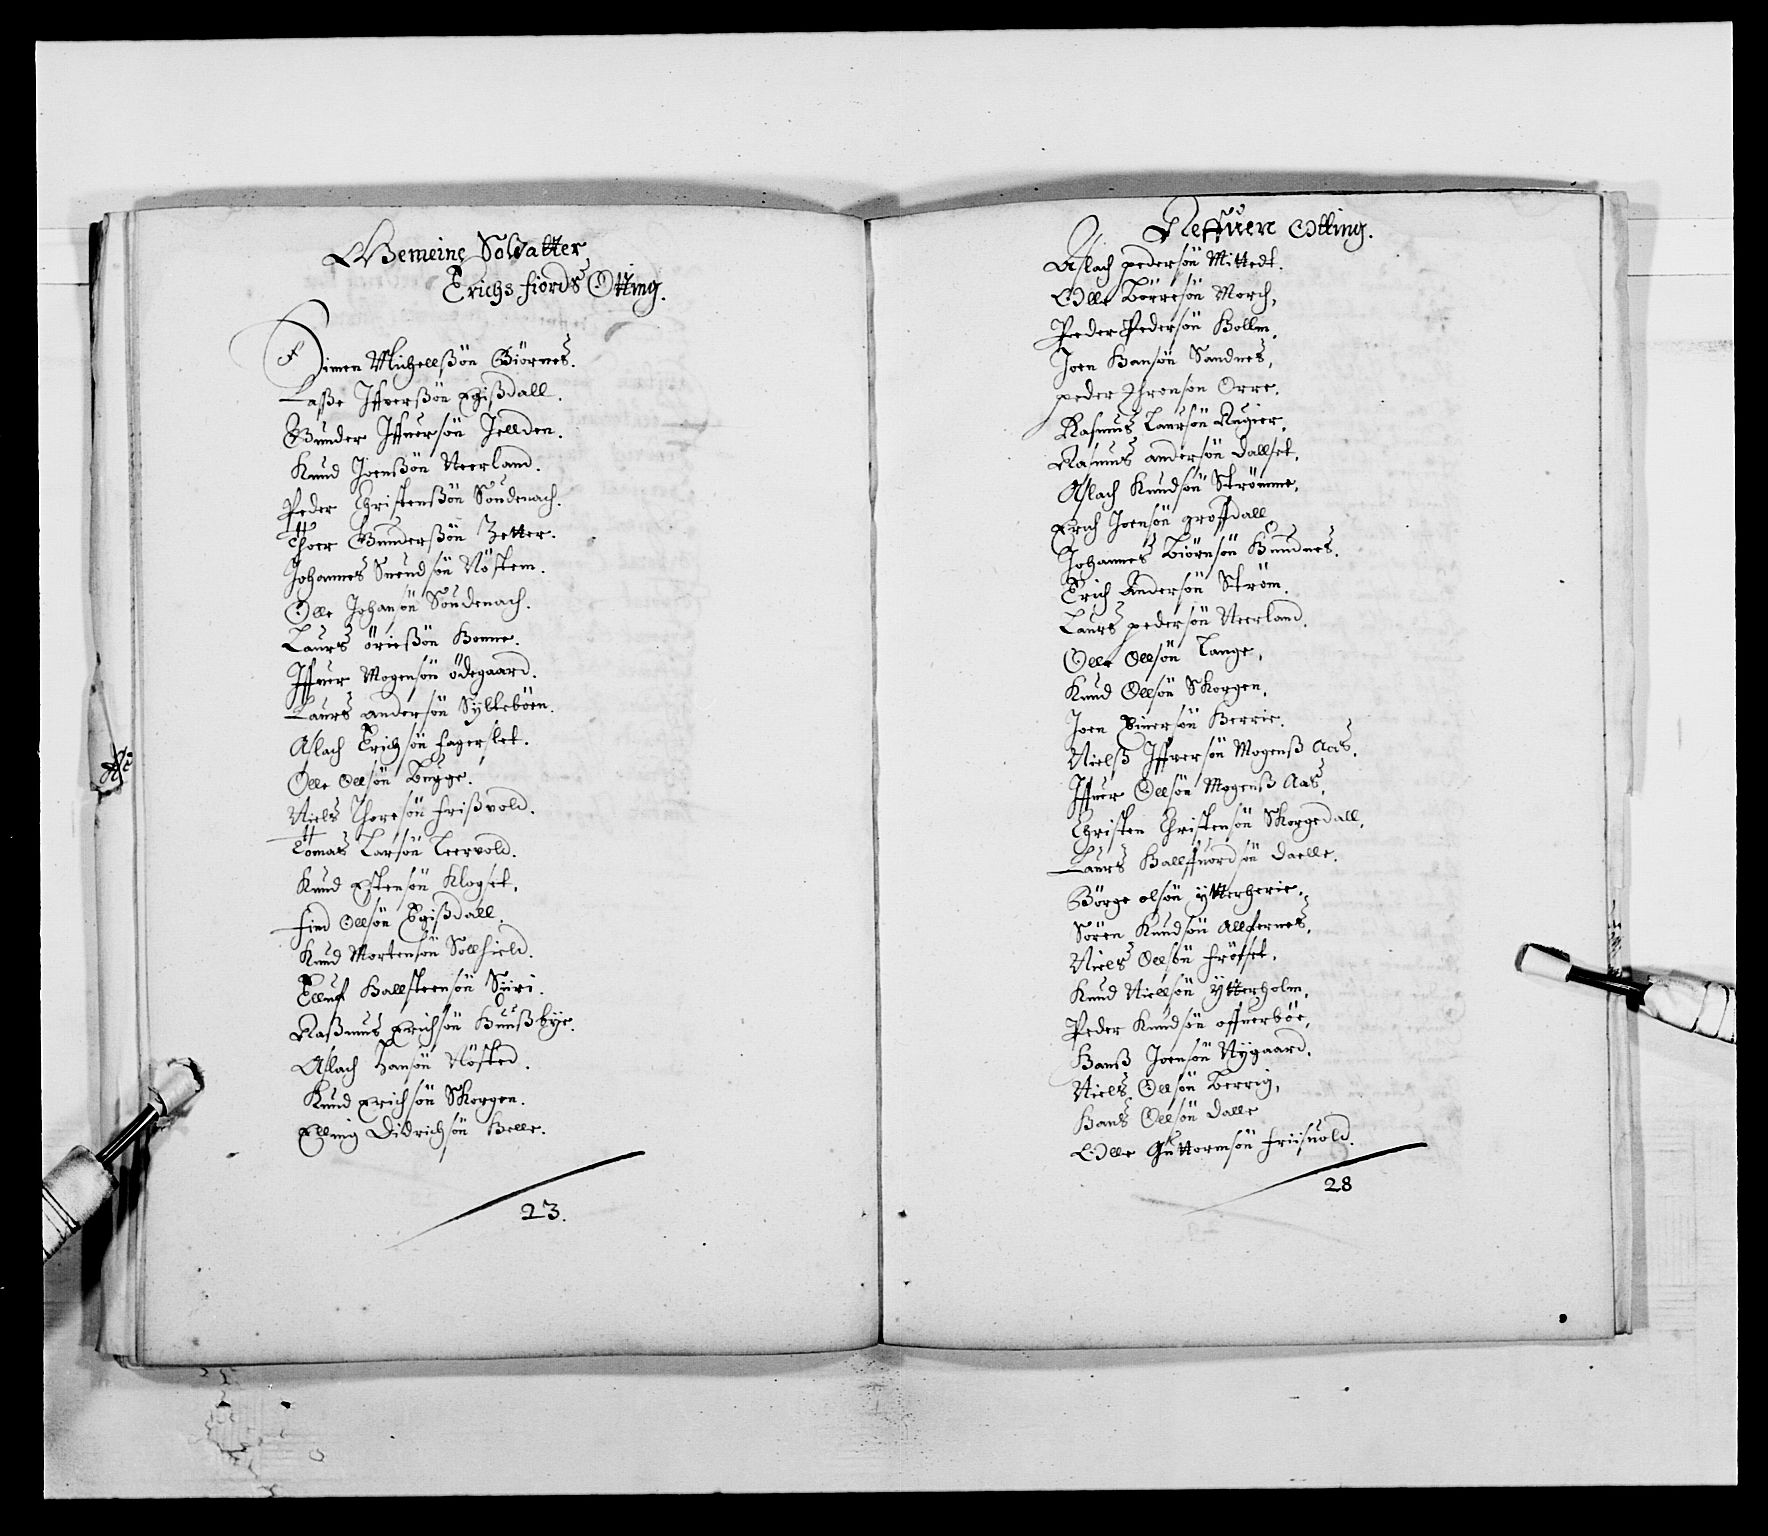 Gemeine Soldatter
Erichs fiords Otting.
Simen Michellßön Giörnes.
Laße Jffverßön Egißdall.
Gunder Jffuersön Jellden.
Knud Joenßön Neerland.
Peder Christenßön Soudenach.
Thoer Gunderßön Zetter.
Johannes Suendsön Nösten.
Olle Johansön Soudenach.
Laurs örießön Bonne.
Jffuer Mogensön ödegaard.
Laurs andersön Sylteböen.
Aslach Erichsön fagerslet.
Olle Ollsön Bugge.
Niels Thoresön frißvold.
Tomas Larsön Leervold.
Knud Estensön Klogset.
find Ollsön Egißdall.
Knud Mortensön Sollfield.
Elluf Hallsteensön Siiri.
Raßmus Erichsön Huußbye.
Aslach Hansön Nösted.
Knud Erichsön Skorgen.
Elling Didrichsön Helle.
23.
Neffuen Otting.
Aslach pedersön Mittedt.
Olle Börresön Morch,
Peder Pedersön Hollm,
Joen Hansön Sandnes,
peder Thronson Orre.
Rasmus Laursön Rugier,
Rasmus andersön dallset,
Aslach Knudsön Strömme,
Erich Joensön groffdall
Johannes Biörnsön Hundnes.
Erich Andersön Ström.
Laurs pedersön Neerland,
Olle Ollsön Lange,
Knud Ollsön Skorgen,
Joen Einersön Berrie.
Nielß Jffversön Mogenß Aas,
Jffuer Ollsön Mogenß Aas,
Christen Christensön Skorgedall,
Laurs Hallffuordsön daelle.
Börge olsön ytterherie,
Sören Knudsön Allfernes,
Niels Ollsön fröset,
Knud Niellsön Ytterholm,
Peder Knudsön offuerböe,
Hanß Joensön Nygaard,
Niels Ollsön Berrig,
Hans Ollsön dalle
Olle Guttormsön friisuold.
28